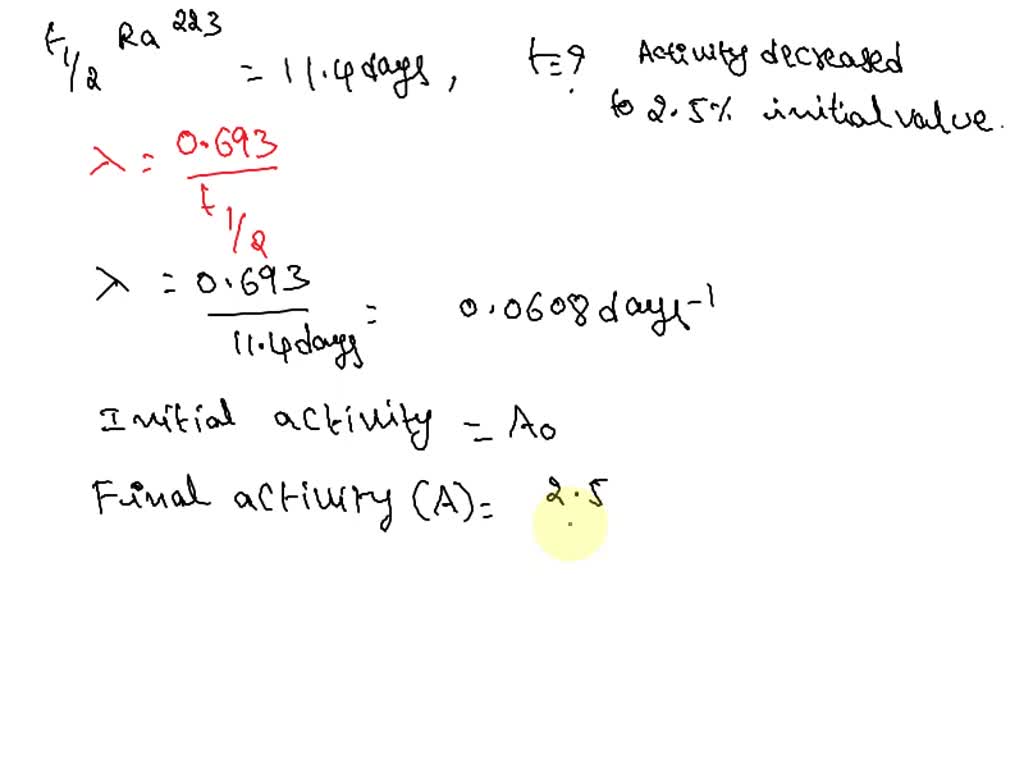 t1/2 Ra 223 = 11.4 days, t=? Activity decreased
to 2.5% initial value.
λ = 0.693
t1/2
λ = 0.693
11.4 days = 0.0608 days-1
Initial activity = A0
Final activity (A) = 2.5